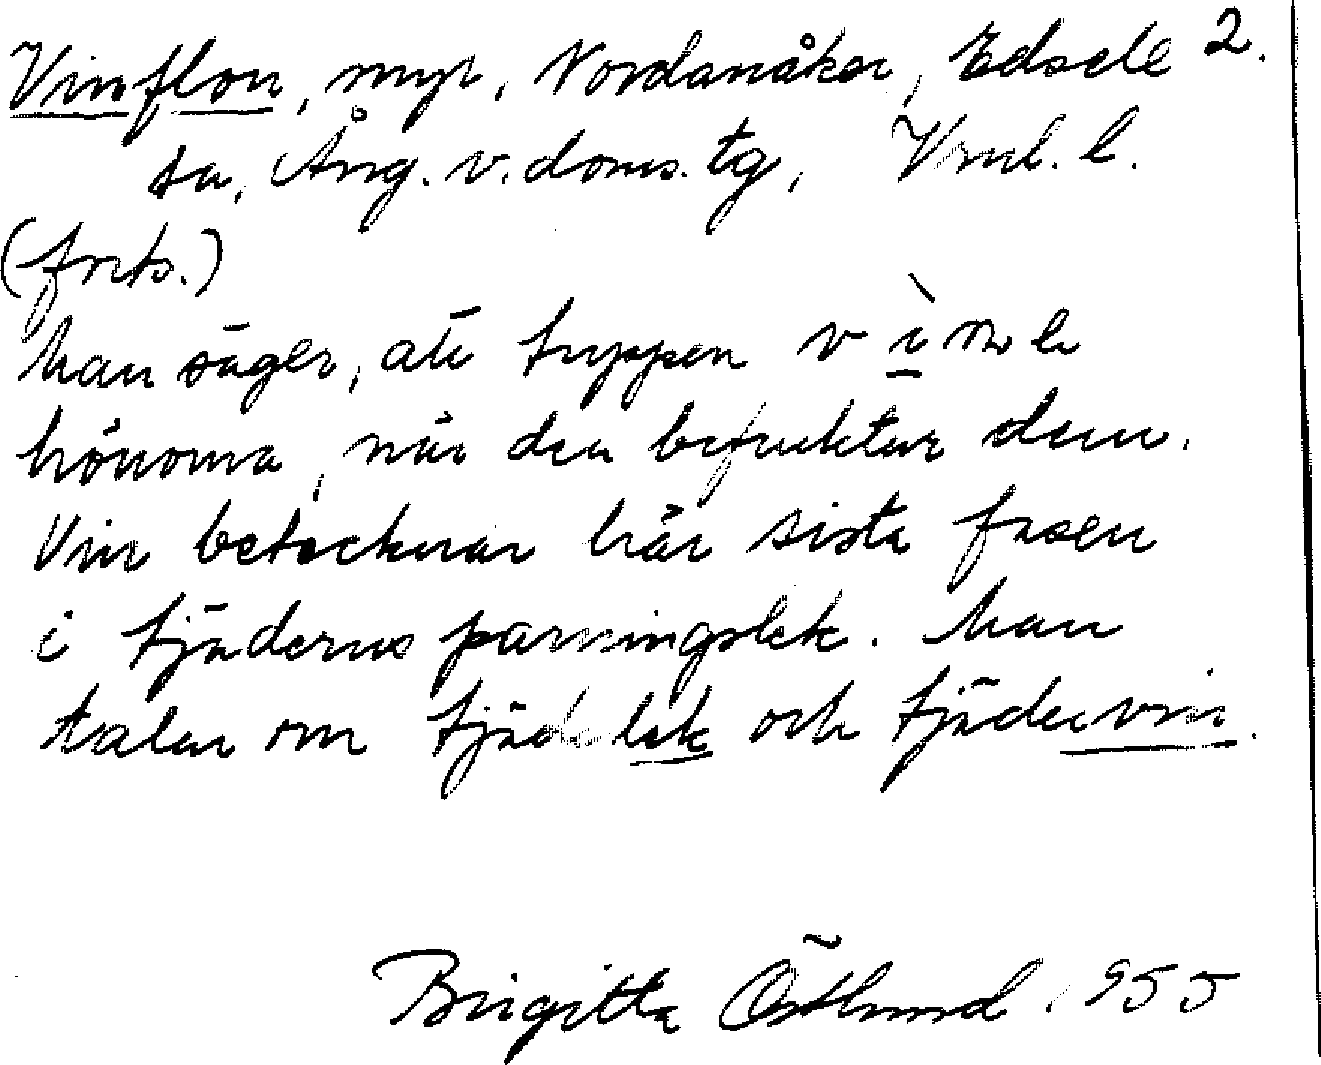 Vinflon, myr, Nordanåker, Edsele 2.
sn, Ång. v. doms. tg, Vrnl. l.
(forts.)
Man säger, att tuppen vìnner
hönorna, när den befruktar dem.
Vin betecknar här sista fasen
i tjäderns parningslek. Man
talar om tjäderlek och tjädervin.
Birgitta Östlund 1955